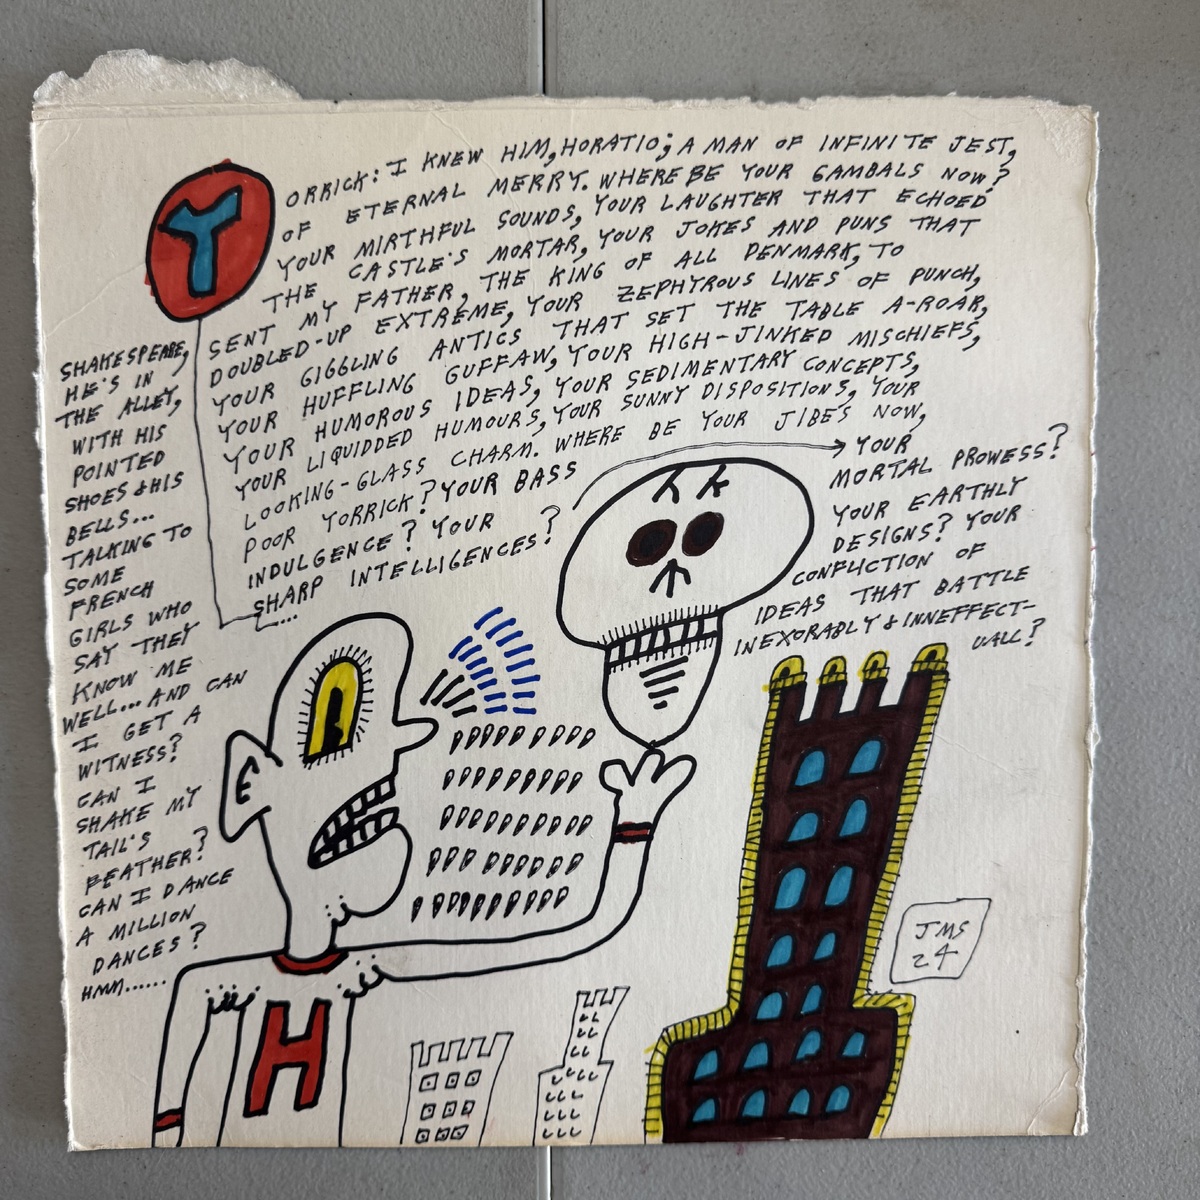 YORRICK: I KNEW HIM, HORATIO; A MAN OF INFINITE JEST,
OF ETERNAL MERRY. WHERE BE YOUR GAMBALS NOW?
YOUR MIRTHFUL SOUNDS, YOUR LAUGHTER THAT ECHOED
THE CASTLE'S MORTAR, YOUR JOKES AND PUNS THAT
SENT MY FATHER, THE KING OF ALL DENMARK, TO
DOUBLED-UP EXTREME, YOUR ZEPHYROUS LINES OF PUNCH,
YOUR GIGGLING ANTICS THAT SET THE TABLE A-ROAR,
YOUR HUFFLING GUFFAW, YOUR HIGH-JINKED MISCHIEFS,
YOUR HUMOROUS IDEAS, YOUR SEDIMENTARY CONCEPTS,
YOUR LIQUIDDED HUMOURS, YOUR SUNNY DISPOSITIONS, YOUR
LOOKING-GLASS CHARM. WHERE BE YOUR JIBE'S NOW,
POOR YORRICK? YOUR BASS
INDULGENCE? YOUR
SHARP INTELLIGENCES?
YOUR
MORTAL PROWESS?
YOUR EARTHLY
DESIGNS? YOUR
CONFLICTION OF
IDEAS THAT BATTLE
INEXORABLY & INNEFFECT-
UALL?
SHAKESPEARE,
HE'S IN
THE ALLEY,
WITH HIS
POINTED
SHOES & HIS
BELLS...
TALKING TO
SOME
FRENCH
GIRLS WHO
SAY THEY
KNOW ME
WELL... AND CAN
I GET A
WITNESS?
CAN I
SHAKE MY
TAIL'S
FEATHER?
CAN I DANCE
A MILLION
DANCES?
HMM......
H
JMS
24